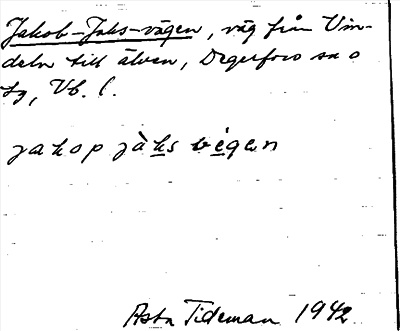 Jakob-Jaks-vägen, väg från Vin-
deln till älven, Degerfors sn o
tg, Vb. l.
jakop jàks végan
Asta Tideman 1942